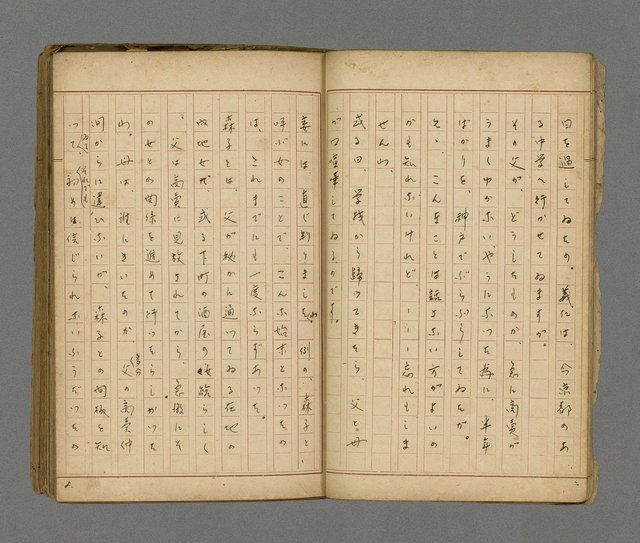 日を過してゐたの。義には、今京都のあ
る中学へ行かせてゐますが。
その父が、どうしたものか、急に商売が
うまくゆかない、やうになつた為に、半年
ばかりを、神戸でぶらぶらしてゐたが。
え、こんなことは話さない方がよいの
かも忘れないけれど——忘れもしま
せん。
或る日、学校から帰つてきたら、父と母
が口喧嘩してゐるのです。
妾には直ぐ判りました。例の、森子とい
呼ぶ女のことで、こんな始末となつたの
は、これまでにも一度ならずあつた。
森子とは、父が秘かに通つてゐる在地の
或る下町の酒屋の娘らしく
父は商売に見放されてから、急激にそ
の女との関係を進めて行つたらしかつた
。母は、誰にきいたものか父の商売仲
間からに違ひないが、森子との関係を知
つて、初めは信じられないふうだつたの